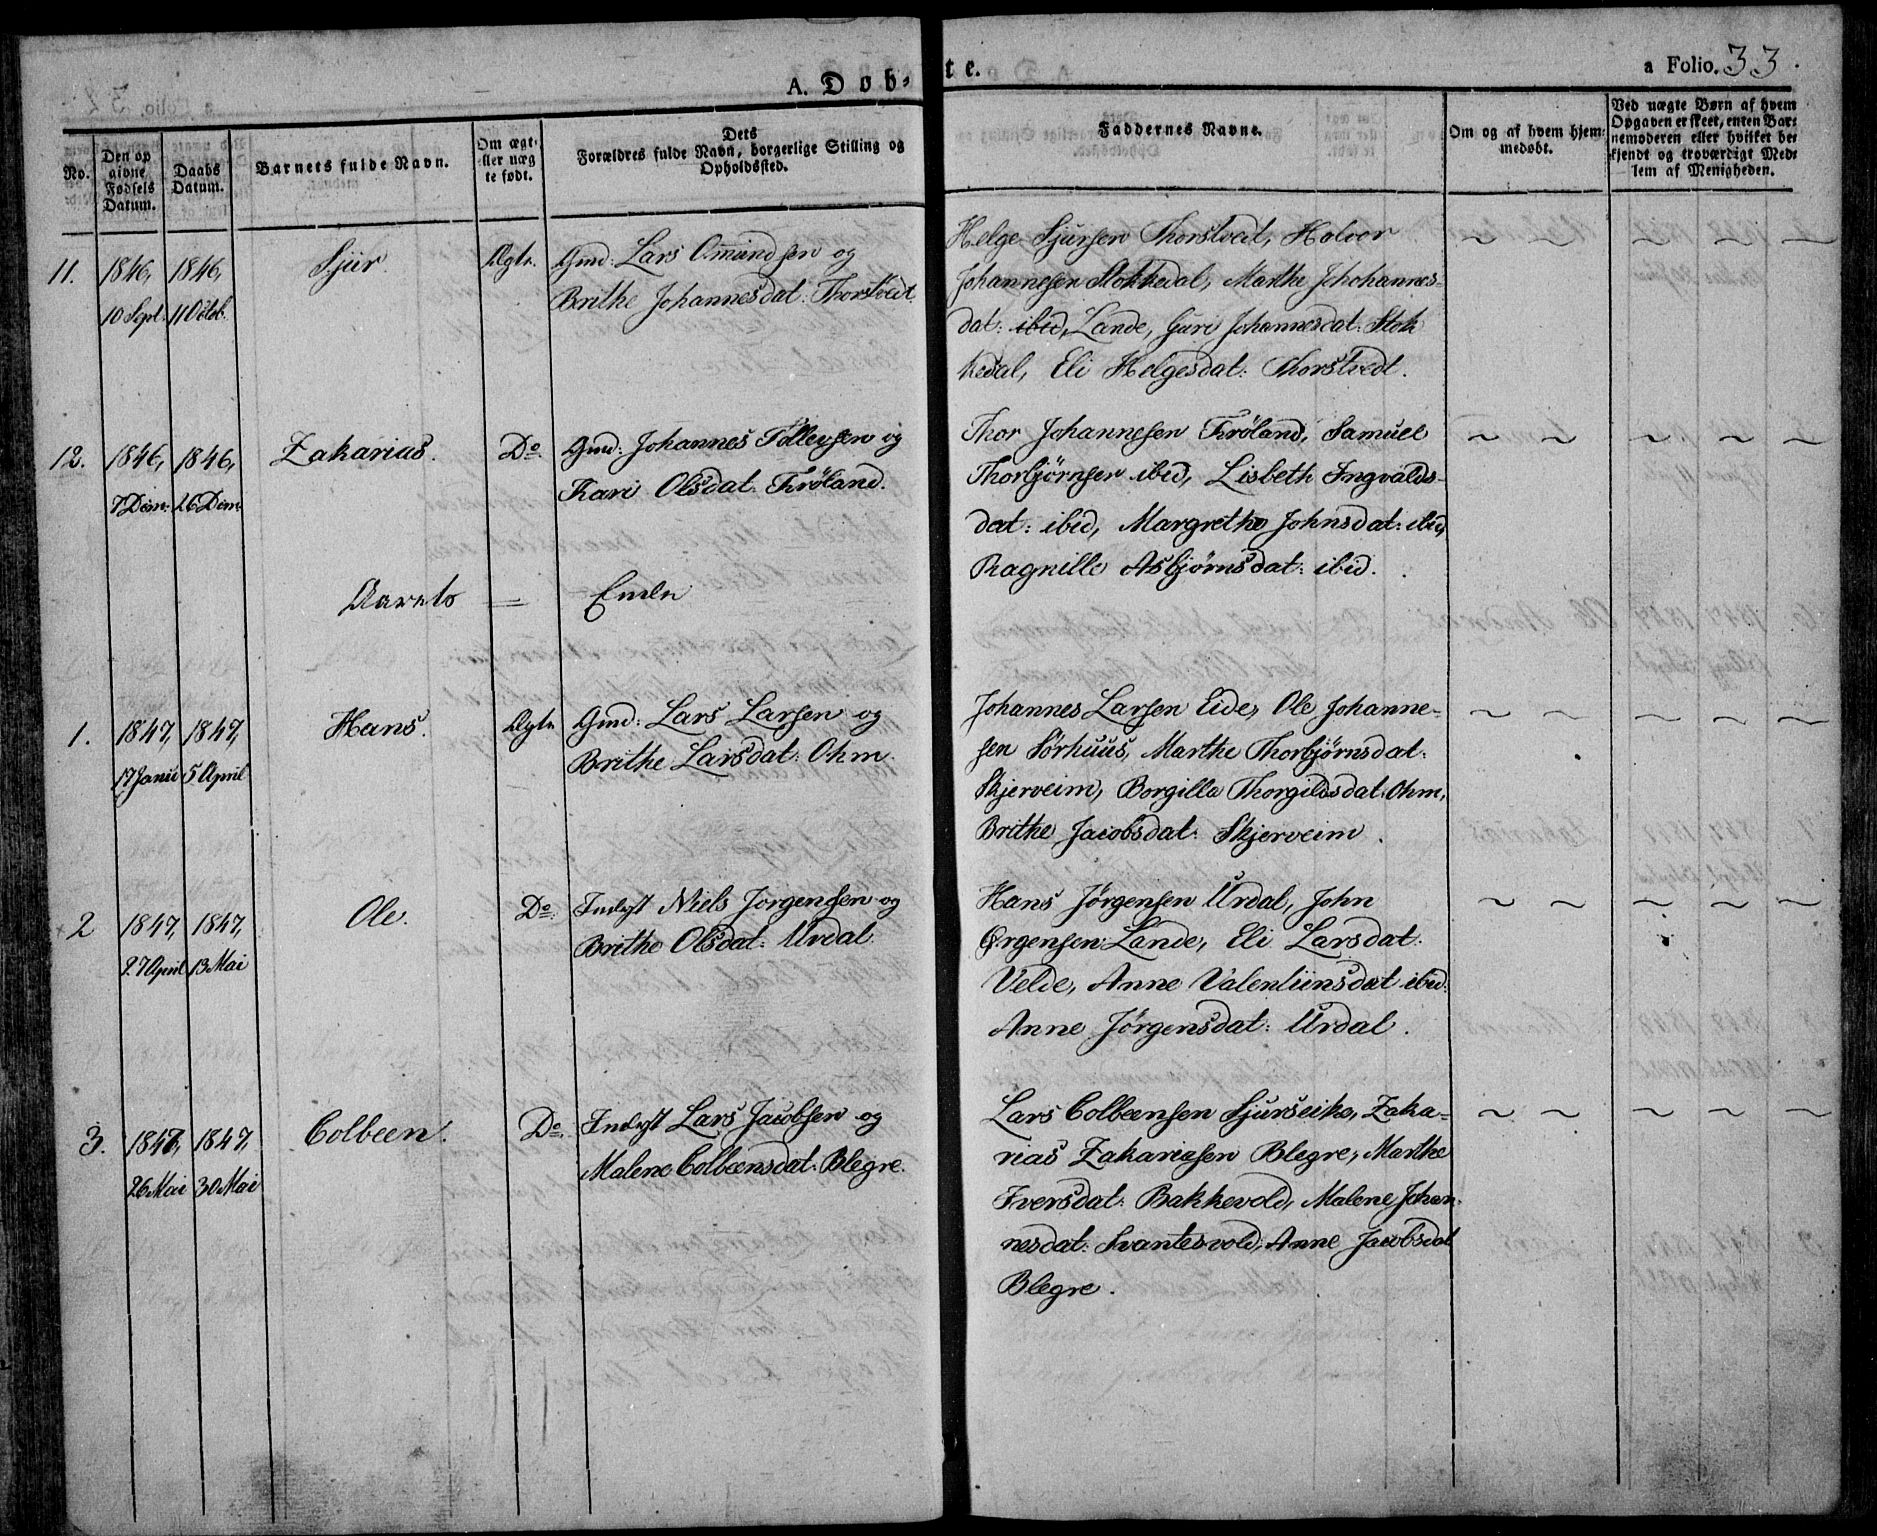 A. Døbte.
a Folio. 33.
No.
Den op
givne
Fødsels
Datum.
Daabs
Datum.
Barnets fulde Navn.
Om ægt-
eller uæg
te født.
Dets
Forældres fulde Navn, borgerlige Stilling og
Opholdssted.
Faddernes Navne.
Om og af hvem hjem-
medøbt.
Ved uægte Børn af hvem
Opgaven er skeet, enten Bar-
nemoderen eller hvilket be-
kjendt og troværdigt Med-
lem af Menigheden.
11.
1846,
10 Sept.
1846,
11 Octob.
Sjur.
Ægte.
Gmd: Lars Omundsen og
Brithe Johannesdat: Thorstvedt
Helge Sjursen Thorstvedt, Holver
Johannesen Stokkedal, Marthe Jhohannes-
dat: ibid, Lande, Guri Johannesdat: Stok
kedal, Eli Helgesdat: Thorstvedt.
~ ~ ~ ~ ~
12.
1846,
7 Decm:
1846,
26 Decm
Zakarias.
Do.
Gmd: Johannes Tollevsen og
Kari Olsdat: Frøland.
Thor Johannesen Frøland, Samuel
Thorbjørnsen ibid, Lisbeth Ingvalds-
dat: ibid, Margrethe Johnsdat: ibid,
Ragnille Asbjørnsdat: ibid.
~ ~ ~ ~ ~
Aarets = Ende
1.
1847,
17 Janu
1847,
5 April
Hans.
Ægte
Gmd: Lars Larsen og
Brithe Larsdat: Ohm.
Johannes Larsen Eide, Ole Johanne-
sen Sørhuus, Marthe Thorbjørnsdat:
Skjerveim, Borgilla Thorgilsdat: Ohm,
Brithe Jacobsdat: Skjerveim.
~ ~ ~ ~ ~
2
1847,
27 April
1847,
13 Mai
Ole.
Do.
Indyst Niels Jørgensen og
Brithe Olsdat: Urdal.
Hans Jørgensen Urdal, John
Ørgensen Lande, Eli Larsdat:
Velde, Anne Valentinsdat ibid:
Anne Jørgensdat: Urdal.
~ ~ ~ ~ ~
3.
1847,
26 Mai
1847,
30 Mai
Colbeen.
Do.
Indyst Lars Jacobsen og
Malene Colbeensdat: Blegre.
Lars Colbeensen Sjurseike, Zaka-
rias Zakariasen Blegre, Marthe
Iversdat: Bakkevold, Malene Johan-
nesdat: Svantesvold, Anne Jacobsdat
Blegre.
~ ~ ~ ~ ~